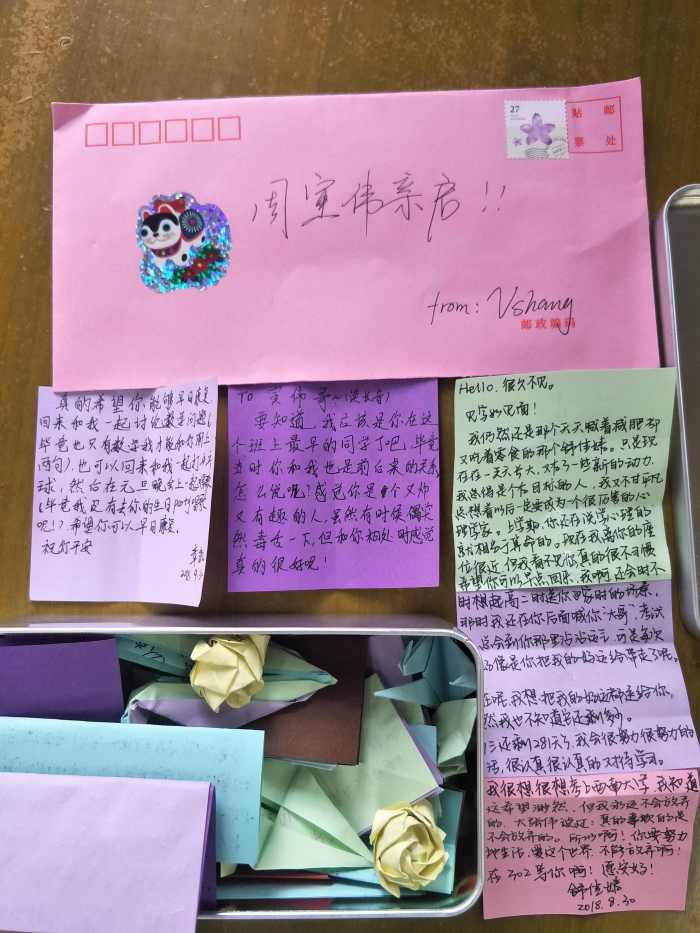 27
贴 邮
票 处
周宣伟亲启!!
from: Vshang
邮政编码
真的希望你能够早日康复
回来和我一起讨论数学问题(
毕竟也只有数学我才能和你附上
两句),也可以回来和我一起打乒乓
球,然后在元旦晚会上一起
(毕竟我还有去你的生日
吧!)希望你可以早日康复,
祝你平安
To 伟哥~
要知道,我应该是你在这
个班上最早的同学了吧,毕竟
当时你和我也是前后桌的关系
怎么说呢?感觉你是个又帅
又有趣的人,虽然有时候偶尔
然毒舌一下,但和你相处时感觉
真的很好呢!
Hello,很久不见。
见字如见面!
我仍然还是那个天天喊着减肥却
又吃着零食的那个舒佳妹。只是现
在在一天天长大,又有了一些新的动力,
我总得是个有目标的人,我又不甘平凡
总想着以后一定要成为一个很厉害的心
理学家。上学期,你还在说学心理的
就相当于算命的,现在我离你的座
位很近,但我看不见你真的很不习惯
希望你可以早点回来,我啊,还会时不
时想起高二时送你回家时的场景,
那时我还在你后面喊你"大哥",考试
总会到你那里沾沾运气,可是每次
好像是你把我的好运给带走了呢。
现在呢,我想把我的好运都送给你,
虽然我也不知道它还剩多少。
还剩281天了,我会很努力很努力的
活,很认真很认真的对待学习。
我很想很想考上西南大学,我知道
这希望渺然,但我永远不会放弃
的,大胡伟说过:真的喜欢的是
不会放弃的。所以啊!你要努力
地生活,爱这个世界,不能放弃啊!
在302等你啊!愿安好!
舒佳妹
2018.8.30